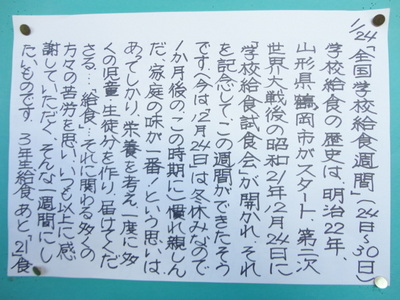 1/24「全国学校給食週間」(24日~30日)
学校給食の歴史は、明治22年、
山形県鶴岡市がスタート。第二次
世界大戦後の昭和21年12月24日に
『学校給食試食会』が開かれ、それ
を記念して、この週間ができたそう
です。(今は12月24日は冬休みなので
1か月後のこの時期に)慣れ親しん
だ“家庭の味が一番!”という思いは
あってしかり。栄養を考え一度に多
くの児童・生徒分を作り、届けてくだ
さる…“給食”…それに関わる多くの
方々の苦労を思い、いつも以上に感
謝していただく、そんな一週間にし
たいものです。3年生給食あと、「21」食